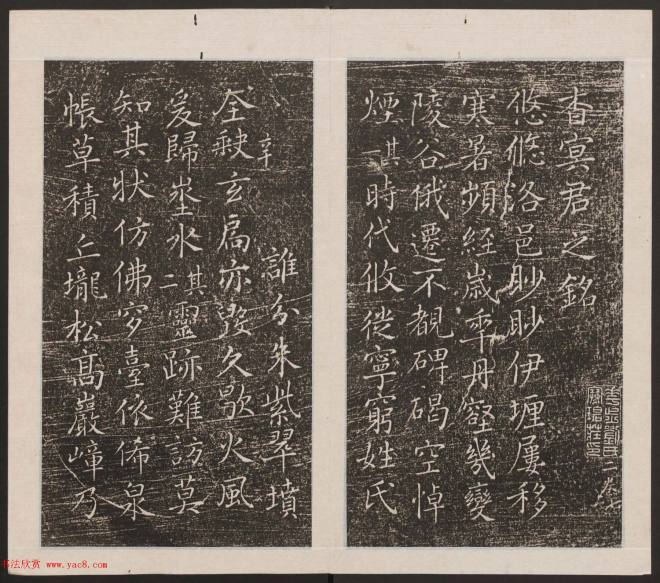 杳冥君之銘
悠悠洛邑眇眇伊瀍屢移
寒暑頻經歲年丹壑幾變
陵谷俄遷不覩碑碣空悼
煙其一時代攸徙寧窮姓氏
誰分朱紫翠墳
全缺玄扃亦毀久歇火風
爰歸坐水其二靈跡難訪莫
知其狀仿佛穸臺依俙泉
帳草積丘壠松高巖嶂乃
书法欣赏 www.yac8.com